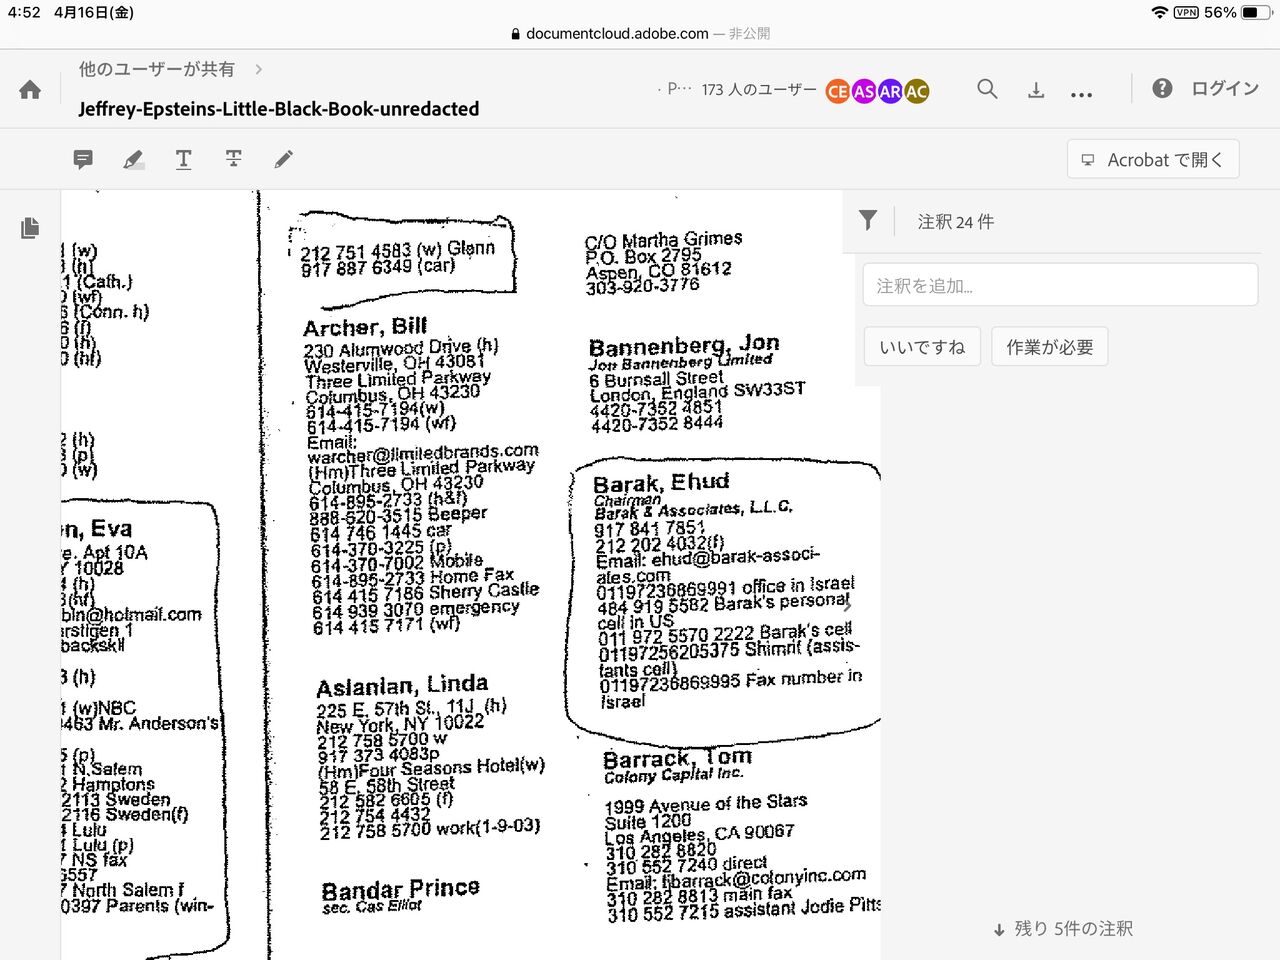 4:52 4月16日(金)
VPN 56%
documentcloud.adobe.com — 非公開
他のユーザーが共有
Jeffrey-Epsteins-Little-Black-Book-unredacted
· P… 173 人のユーザー CE AS AR AC
ログイン
Acrobat で開く
(w)
(h)
1 (Cath.)
(wf)
(Conn. h)
(f)
(h)
(hf)
(h)
(p)
(w)
n, Eva
e. Apt 10A
Y 10028
(h)
(hf)
bin@hotmail.com
rstigen 1
backskil
(h)
(w)NBC
4463 Mr. Anderson's
(p)
N.Salem
Hamptons
2113 Sweden
2116 Sweden(f)
Lulu
Lulu (p)
NS fax
6557
North Salem f
0397 Parents (win-
212 751 4583 (w) Glenn
917 887 6349 (car)
Archer, Bill
230 Alumwood Drive (h)
Westerville, OH 43081
Three Limited Parkway
Columbus, OH 43230
614-415-7194(w)
614-415-7194 (wf)
Email:
warcher@limitedbrands.com
(Hm)Three Limited Parkway
Columbus, OH 43230
614-895-2733 (h&f)
888-620-3515 Beeper
614 746 1445 car
614-370-3225 (p)
614-370-7002 Mobile
614-895-2733 Home Fax
614 415 7186 Sherry Castle
614 939 3070 emergency
614 415 7171 (wf)
Aslanian, Linda
225 E. 57th St., 11J (h)
New York, NY 10022
212 758 5700 w
917 373 4083p
(Hm)Four Seasons Hotel(w)
58 E. 58th Street
212 582 6605 (f)
212 754 4432
212 758 5700 work(1-9-03)
Bandar Prince
sec. Cas Elliot
C/O Martha Grimes
P.O. Box 2795
Aspen, CO 81612
303-920-3776
Bannenberg, Jon
Jon Bannenberg Limited
6 Burnsall Street
London, England SW33ST
4420-7352 4851
4420-7352 8444
Barak, Ehud
Chairman
Barak & Associates, L.L.C.
917 841 7851
212 202 4032(f)
Email: ehud@barak-associ-
ates.com
01197236869991 office in Israel
484 919 5582 Barak's personal
cell in US
011 972 5570 2222 Barak's cell
01197256205375 Shimrit (assis-
tants cell)
01197236869995 Fax number in
Israel
Barrack, Tom
Colony Capital Inc.
1999 Avenue of the Stars
Suite 1200
Los Angeles, CA 90067
310 282 8820
310 552 7240 direct
Email: tjbarrack@colonyinc.com
310 282 8813 main fax
310 552 7215 assistant Jodie Pitts
注釈 24 件
注釈を追加...
いいですね
作業が必要
残り 5件の注釈